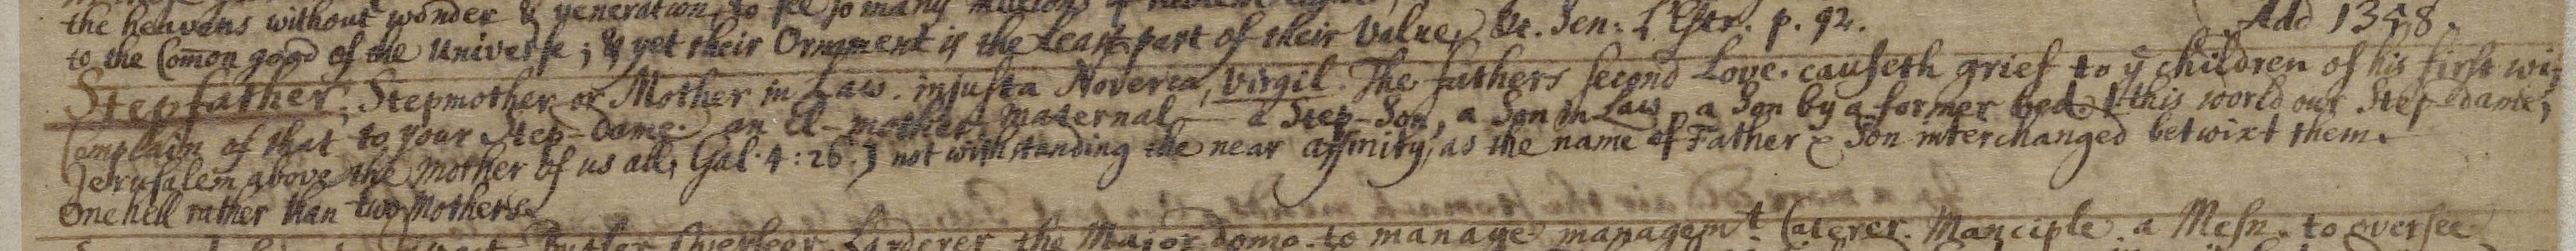 the heavens without wonder & veneration, to see so many million of
to the Com̄on good of the Universe; & yet their Ornament is the least part of their Value, &c. Sen: L'Estr: p. 92. Add 1358.
Stepfather, Stepmother or Mother in Law. injusta Noverca, Virgil. The fathers second Love. causeth grief to yͤ children of his first wif
Complain of that to your Step-dame. an El-mother. Maternal — a Step-Son, a Son in Law, a Son by a former bed. this world our Step-dame,
Jerusalem above the Mother of us all, Gal. 4:26.] not withstanding the near affinity, as the name of Father & Son interchanged betwixt them.
One hell rather than two Mothers.
Butler Overseer. Larderer. the Major domo. to manage managemᵗ Caterer. Manciple. a Mesn. to oversee